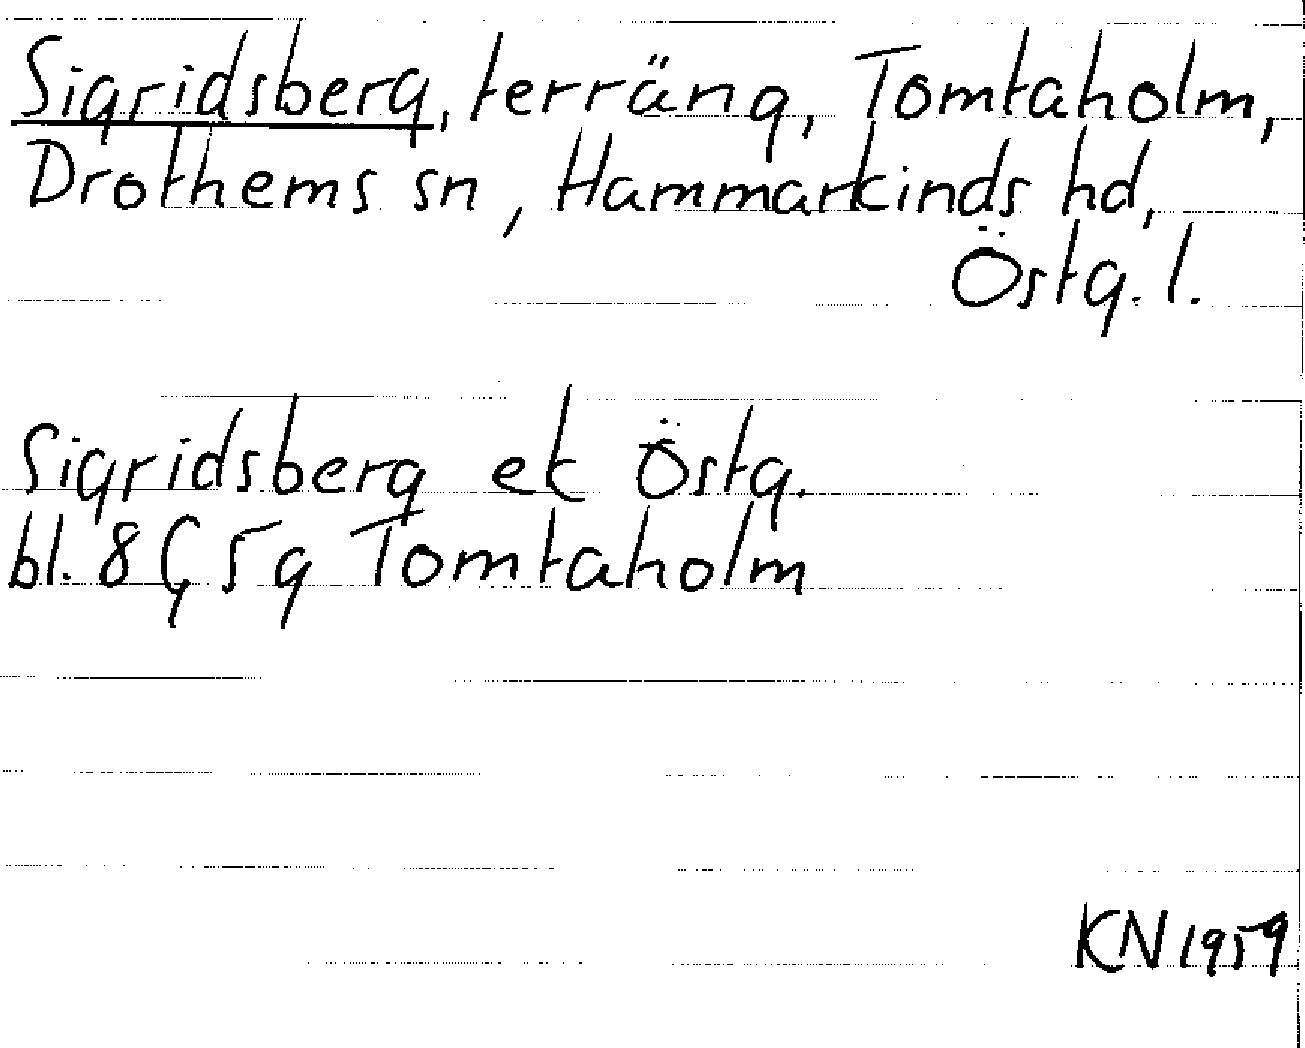 Sigridsberg, terräng, Tomtaholm,
Drothems sn, Hammarkinds hd,
Östg. l.
Sigridsberg ek Östg.
bl. 8 G, 5 g Tomtaholm
KN 1959